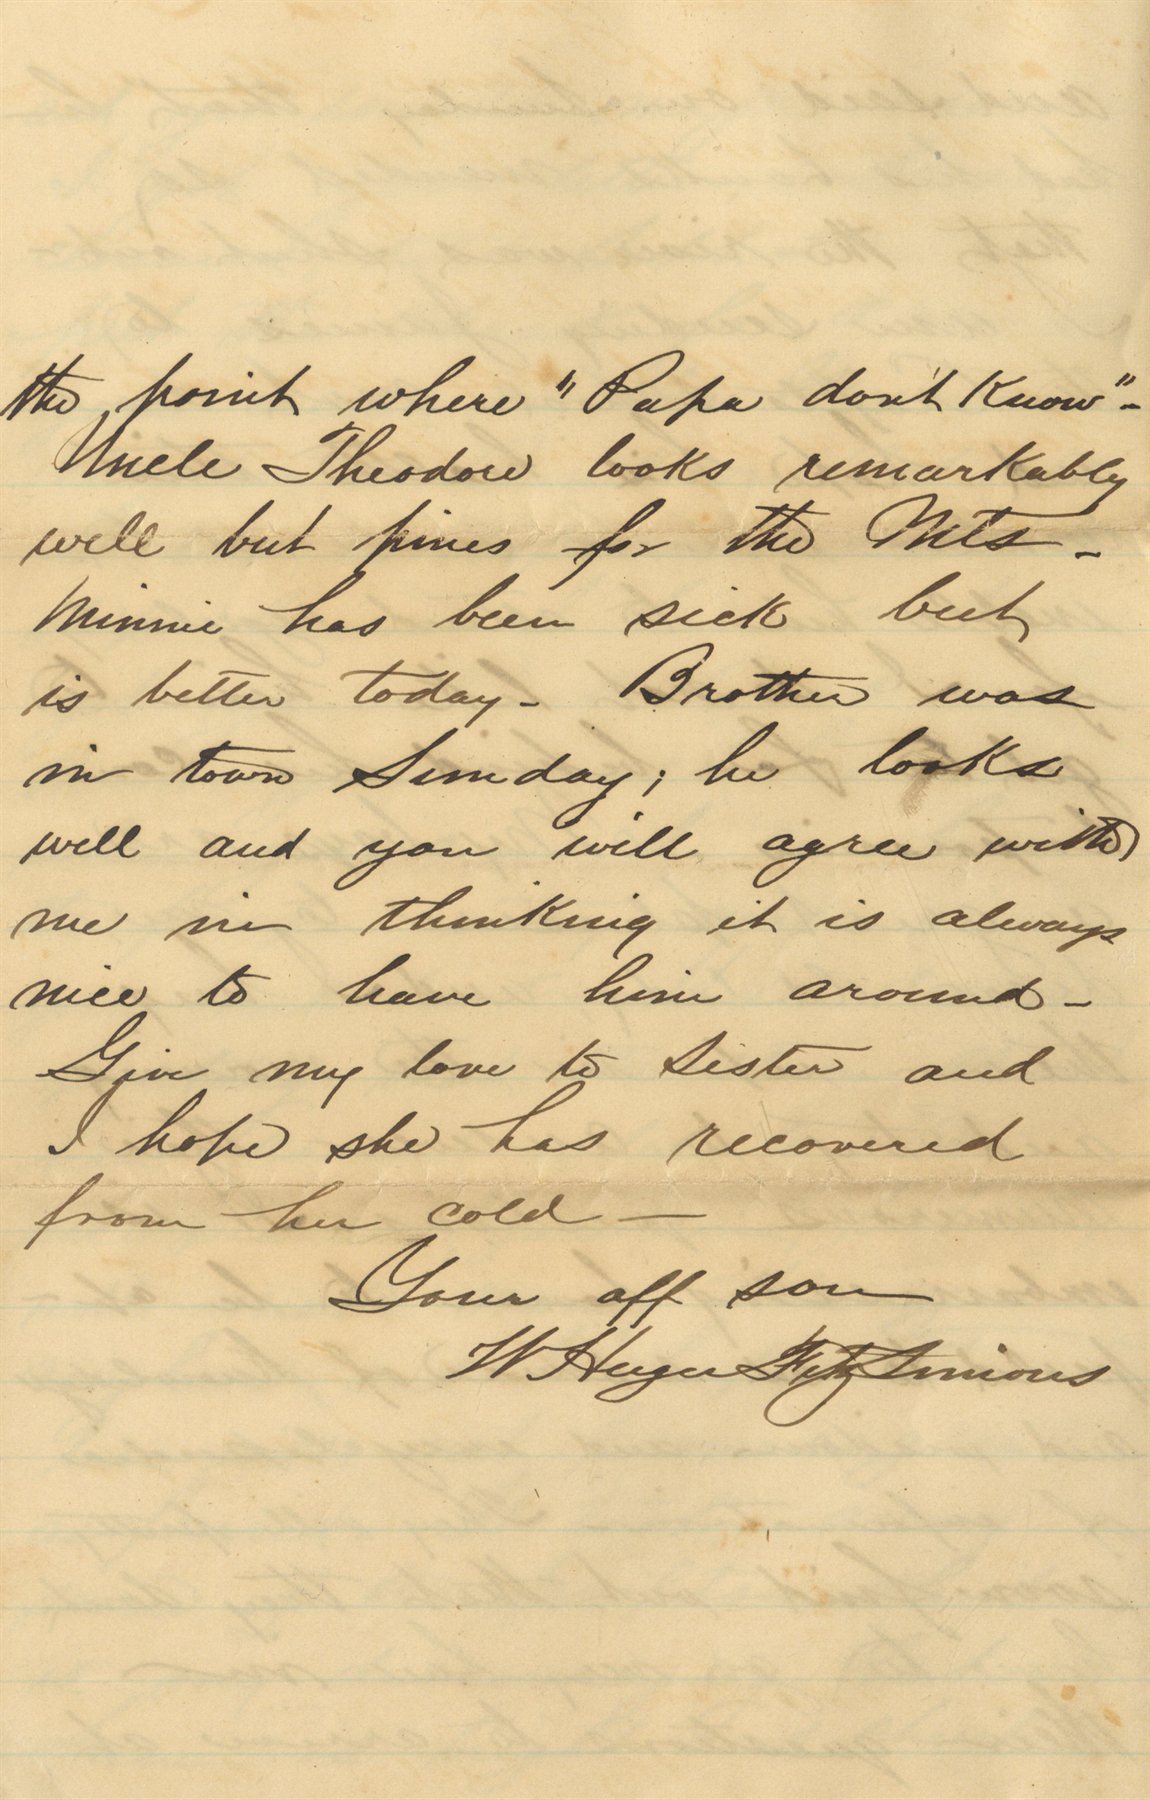 the point where "Papa don't know" -
Uncle Theodore looks remarkably
well but pines for the Mts -
Minnie has been sick but
is better today - Brother was
in town Sunday; he looks
well and you will agree with
me in thinking it is always
nice to have him around -
Give my love to Sister and
I hope she has recovered
from her cold —
Your aff son
W Huger FitzSimons